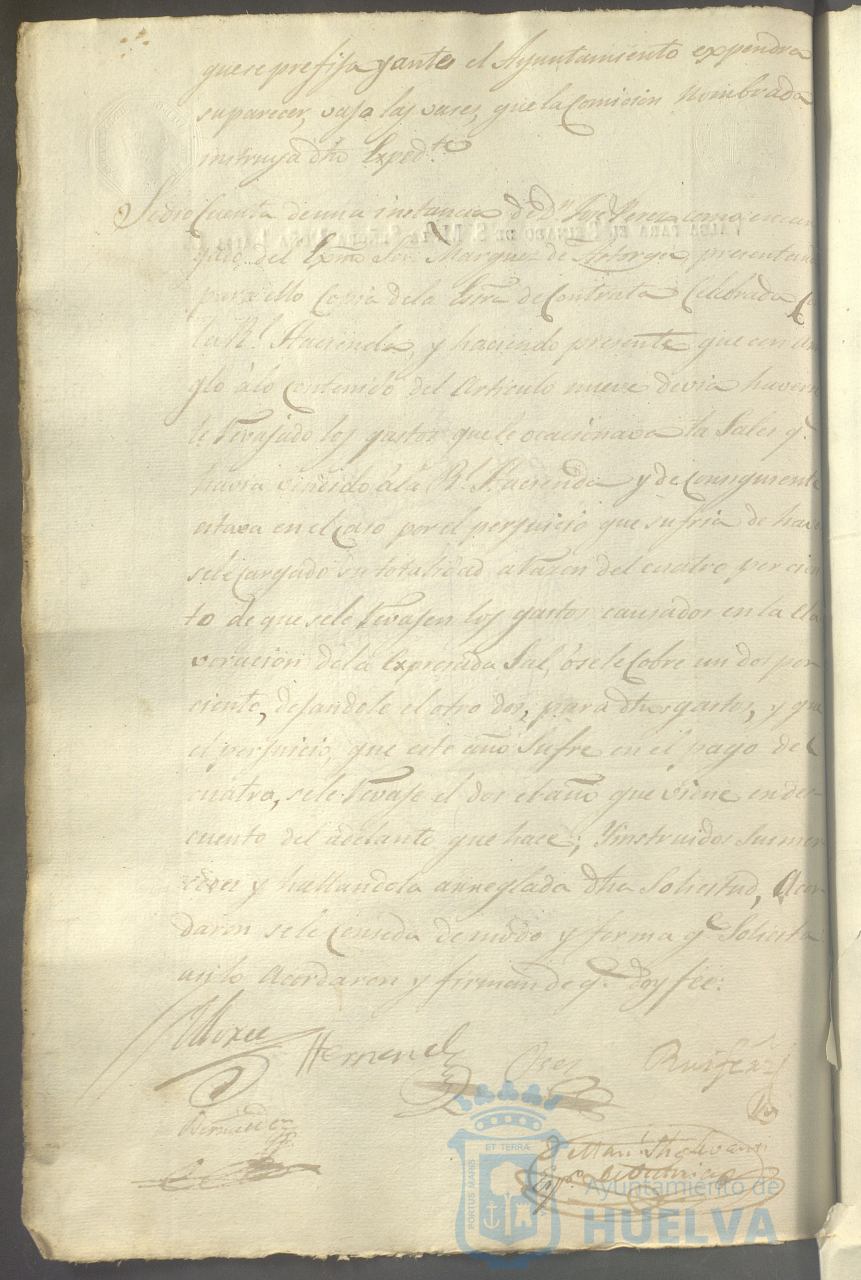 que se prefija y antes el Ayuntamiento expendra
su parecer, vajo las vases, que la Comicion Nombrada
instruya dho Expedte
Se dio Cuenta de una instancia de Dn. Jose Perez como encar
gado del Exmo Sor. Marquez de Astorga presentando
para ello Copia de la Escra de Contrata Celebrada Co
la Rl. Hacienda, y haciendo presente que con arre
glo á lo contenido del Articulo nueve devia haver
le revajado los gastos que le ocacionava la Sales q.
havia vendido á la Rl. Hacienda y de Consiguiente
estava en el Caso por el perjuicio que sufria de have
sele Cargado su totalidad a razon del cuatro por cien
to de que sele revajen los gastos causados en la ela
voracion de la Expresada Sal, ó sele Cobre un dos por
ciento, dejandole el otro dos, para dhos gastos, y que
el perjuicio, que este año Sufre en el pago del
cuatro, sele revaje el dos el año que viene en des-
cuento del adelanto que hace; Y instruidos Sus mer
cedes y hallandola arreglada dha Solicitud, Acor
daron se le Conseda de modo y forma qe Solicita
asi lo Acordaron y firman de q. doy fee:
Hernandez
Ruifernz
Bermudez
PORTUS MARIS ET TERRAE
Ayuntamiento de
HUELVA